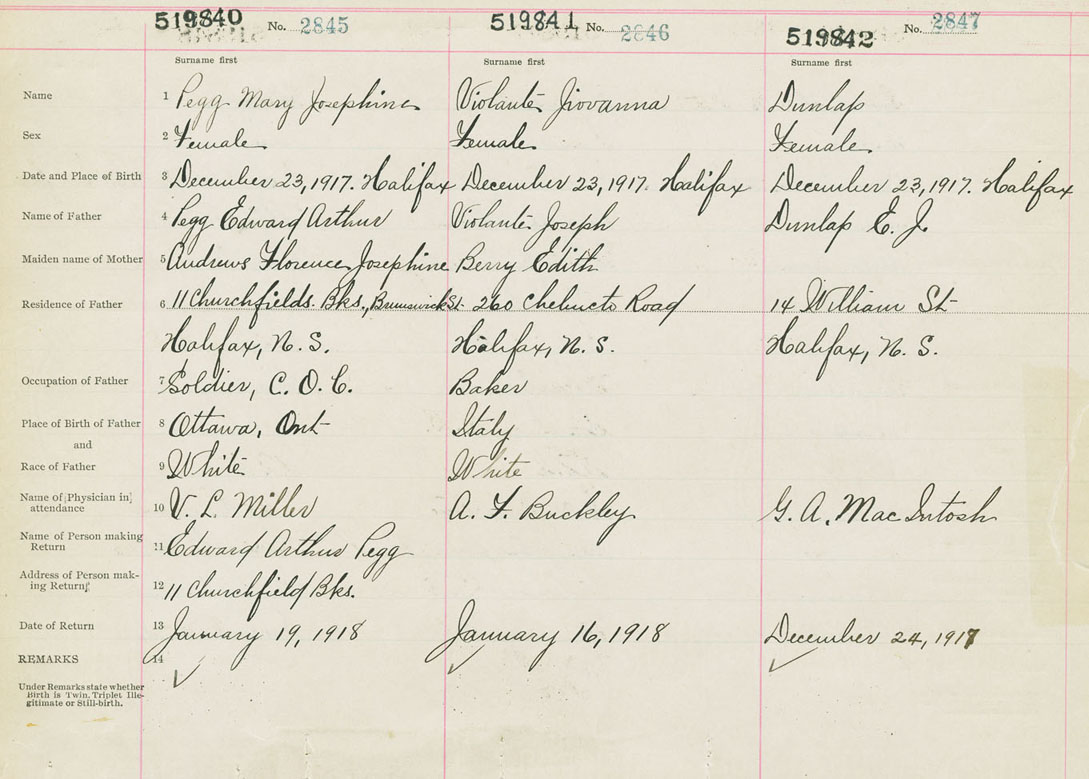 519840 No. 2845 519841 No. 2846 519842 No. 2847
Surname first Surname first Surname first
Name 1 Pegg Mary Josephine Violante Jiovanna Dunlap
Sex 2 Female Female Female
Date and Place of Birth 3 December 23, 1917. Halifax December 23, 1917. Halifax December 23, 1917. Halifax
Name of Father 4 Pegg Edward Arthur Violante Joseph Dunlap E. J.
Maiden name of Mother 5 Andrews Florence Josephine Berry Edith
Residence of Father 6 11 Churchfields. Bks., Brunswick St. 260 Chebucto Road 14 William St
Halifax, N. S. Halifax, N. S. Halifax, N. S.
Occupation of Father 7 Soldier, C. O. C. Baker
Place of Birth of Father 8 Ottawa, Ont Italy
and
Race of Father 9 White White
Name of Physician in
attendance 10 V. L. Miller A. F. Buckley G. A. MacIntosh
Name of Person making
Return 11 Edward Arthur Pegg
Address of Person mak-
ing Return 12 11 Churchfield Bks.
Date of Return 13 January 19, 1918 January 16, 1918 December 24, 1917
REMARKS 14
Under Remarks state whether
Birth is Twin, Triplet Ille-
gitimate or Still-birth.